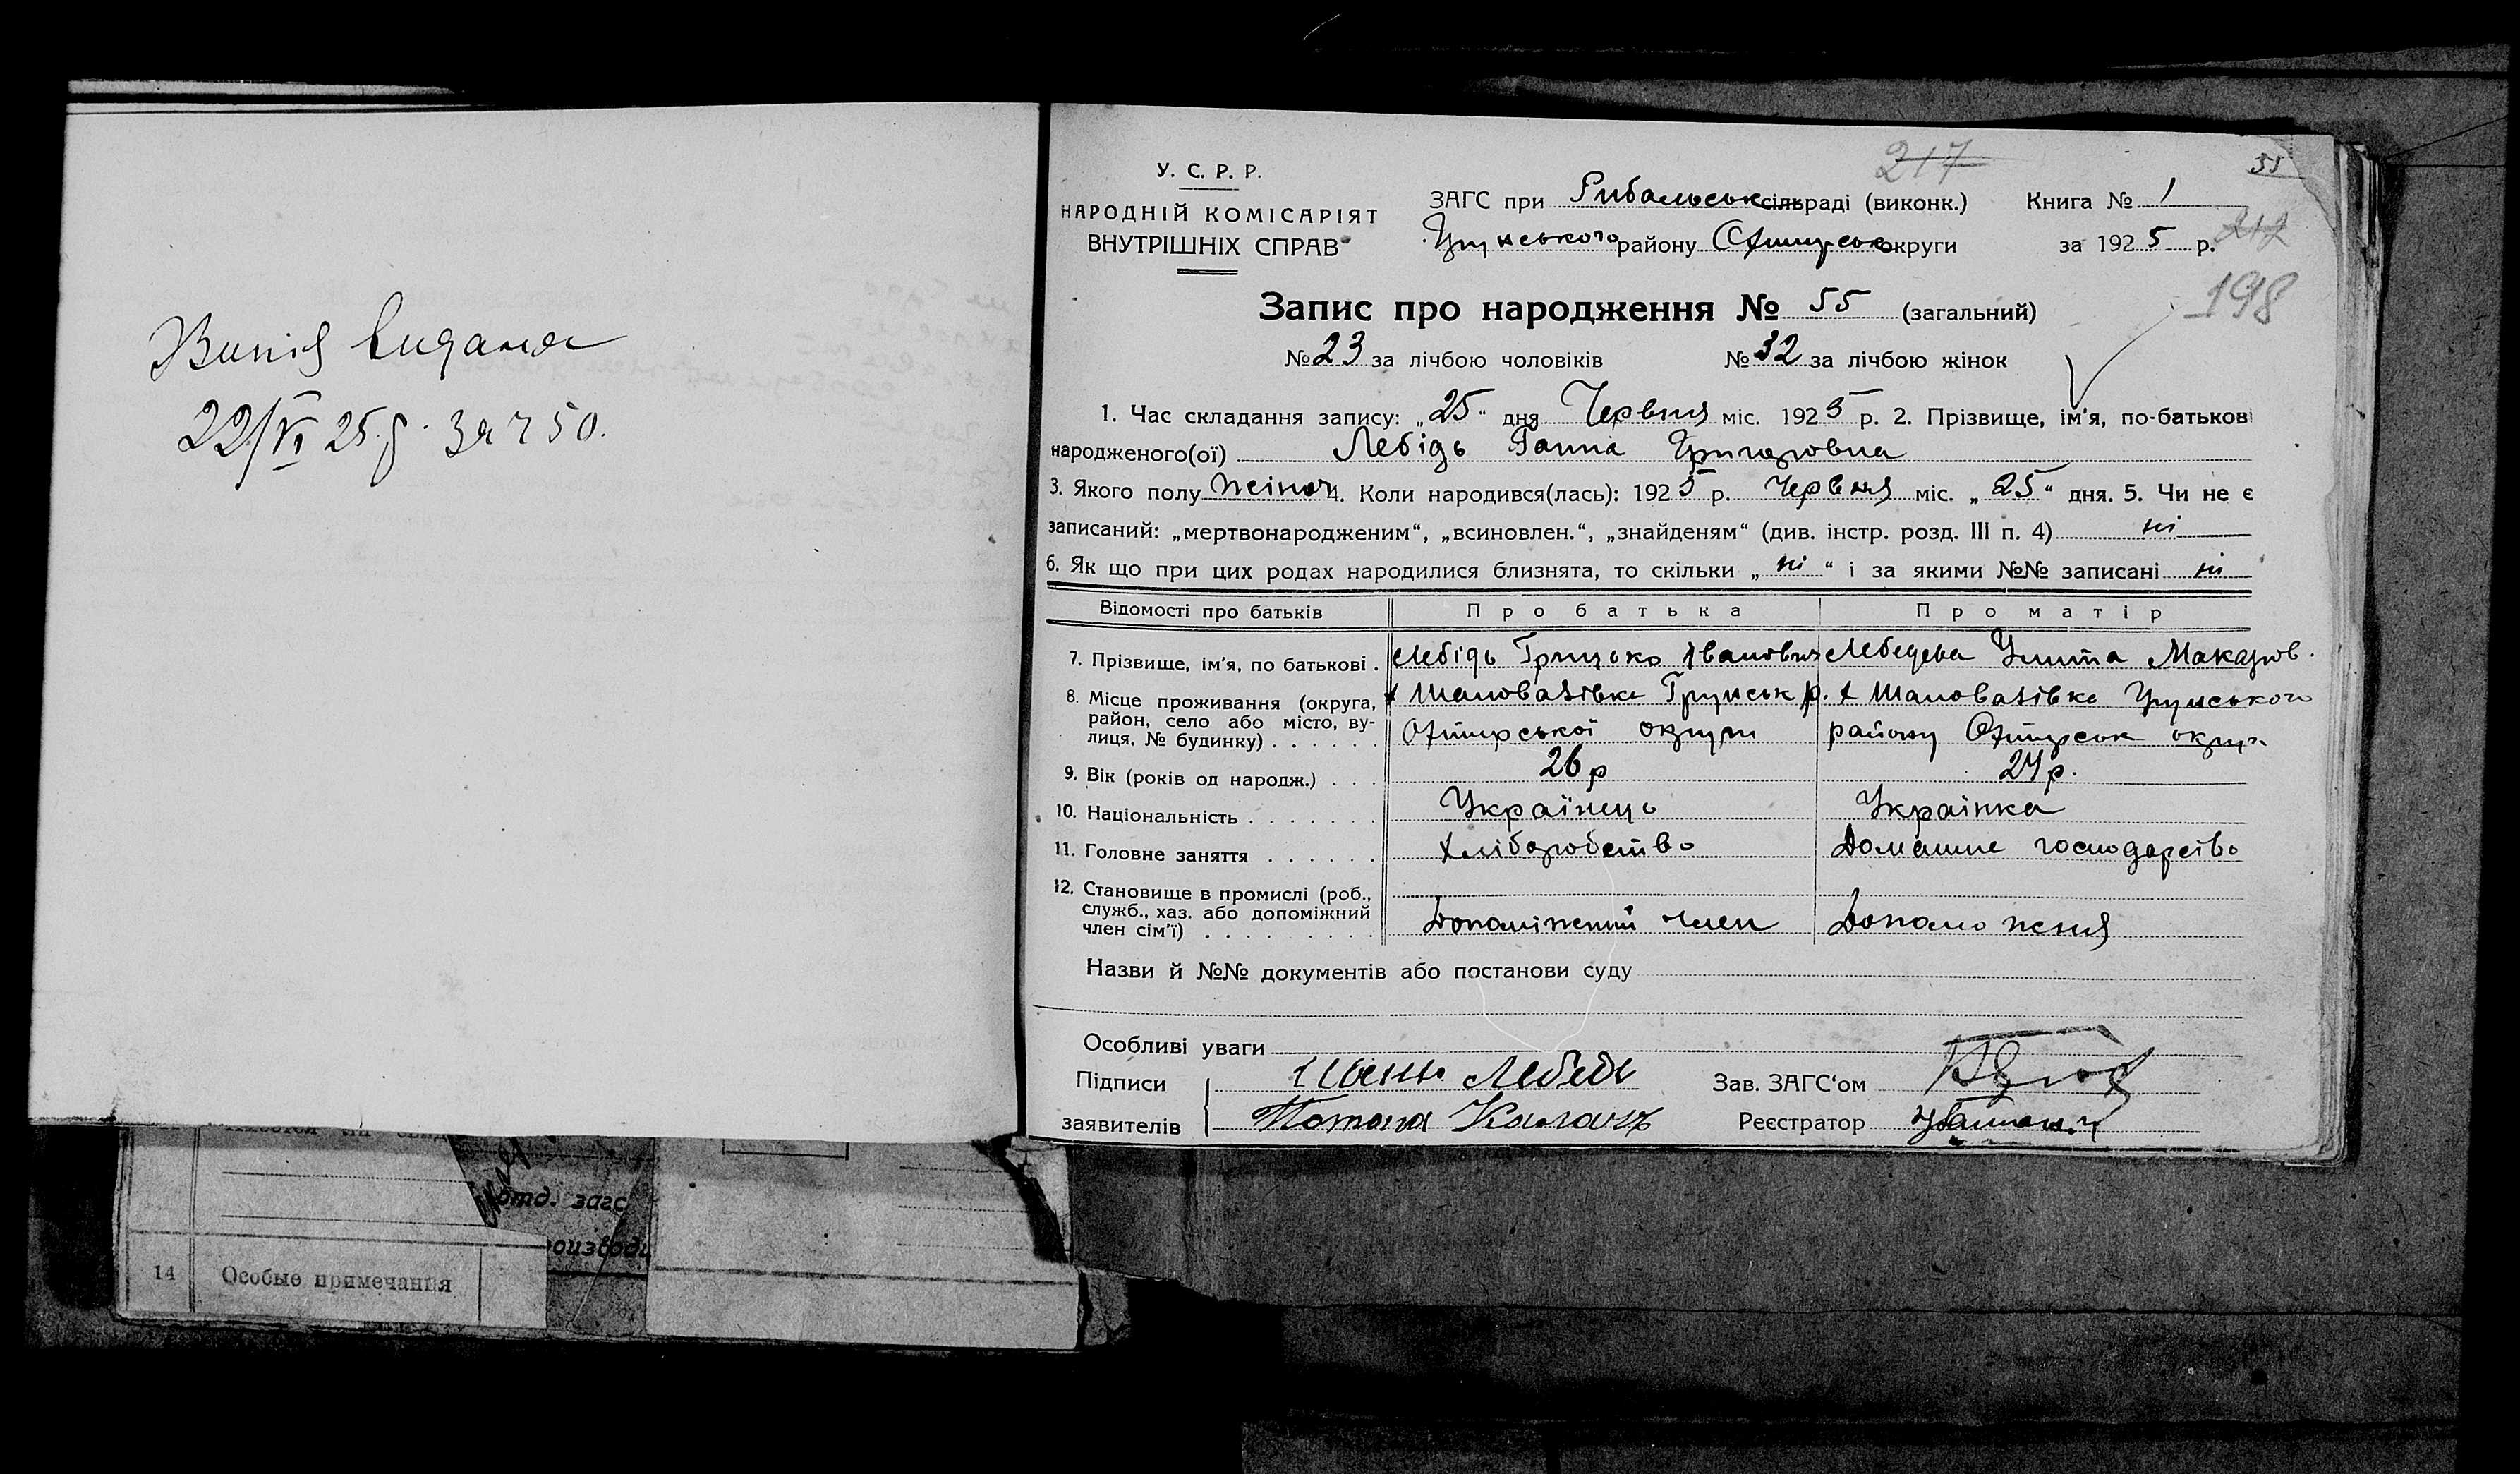 Випіс видана
22/VI 25 р. За ч 50.
217
55
У. С. Р. Р.
НАРОДНІЙ КОМІСАРІЯТ
ВНУТРІШНІХ СПРАВ
ЗАГС при Рибальськ сільраді (виконк.) Книга № 1
Грунського району Охтирськ округи за 1925 р. 212
198
Запис про народження № 55 (загальний)
№ 23 за лічбою чоловіків № 32 за лічбою жінок
1. Час складання запису: „25“ дня Червня міс. 1925 р. 2. Прізвище, ім’я, по-батькові
народженого(ої) Лебідь Ганна Григоровна
3. Якого полу жіноч 4. Коли народився(лась): 1925 р. Червня міс. „25“ дня. 5. Чи не є
записаний: „мертвонародженим“, „всиновлен.“, „знайденям“ (див. інстр. розд. III п. 4) ні
6. Як що при цих родах народилися близнята, то скільки „ні“ і за якими №№ записані ні
Відомості про батьків Про батька Про матір
7. Прізвище, ім’я, по батькові . Лебідь Грицько Іванович Лебедева Улита Макаров.
8. Місце проживання (округа, район, село або місто, вулиця, № будинку) . . . . . .
х Шаповалівка Грунськ р. х Шаповалівка Грунського
Охтирської округи району Охтирськ округи
9. Вік (років од народж.) . . . 26 р 24 р.
10. Національність . . . . . . . Українець Українка
11. Головне заняття . . . . . . хліборобство Домашнє господарство
12. Становище в промислі (роб.,
служб., хаз. або допоміжний
член сім’ї) . . . . . . . . . Допоміжний член Допоможня
Назви й №№ документів або постанови суду
Особливі уваги
Підписи Лебедь Зав. ЗАГС‘ом
заявителів Реєстратор
отд. загс
14 Особые примечания